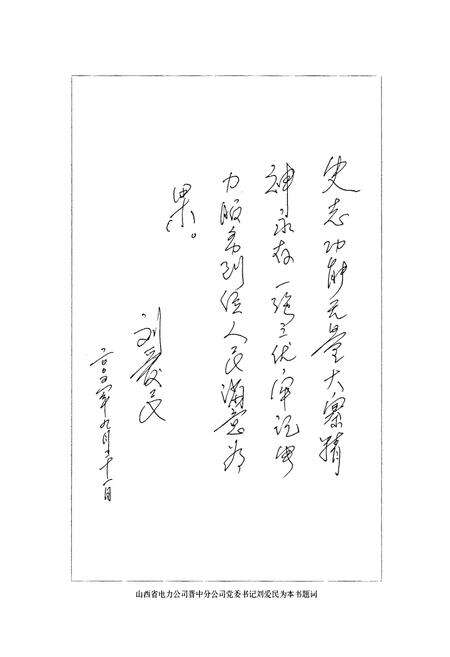 史志功能无量大寨精
神永存一强三优牢记电
力服务到位人民满意为
果。
刘爱民
二〇〇四年九月二十一日
山西省电力公司晋中分公司党委书记刘爱民为本书题词